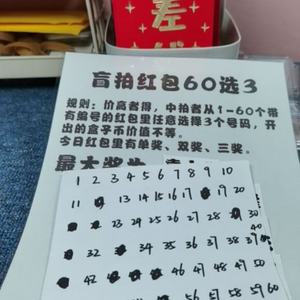 差
盲拍红包60选3
规则：价高者得，中拍者从1-60个带
有编号的红包里任意选择3个号码，开
出的盒子币价值不等。
今日红包里有单奖、双奖、三奖。
最大奖为
1 2 3 4 5 6 7 8 9 10
11 13 14 15 16 17 19 20
23 24 25 26 27 28 30
32 34 35 36 37 38 39 40
42 46 47 48 49 50
55 56 57 58 59 60